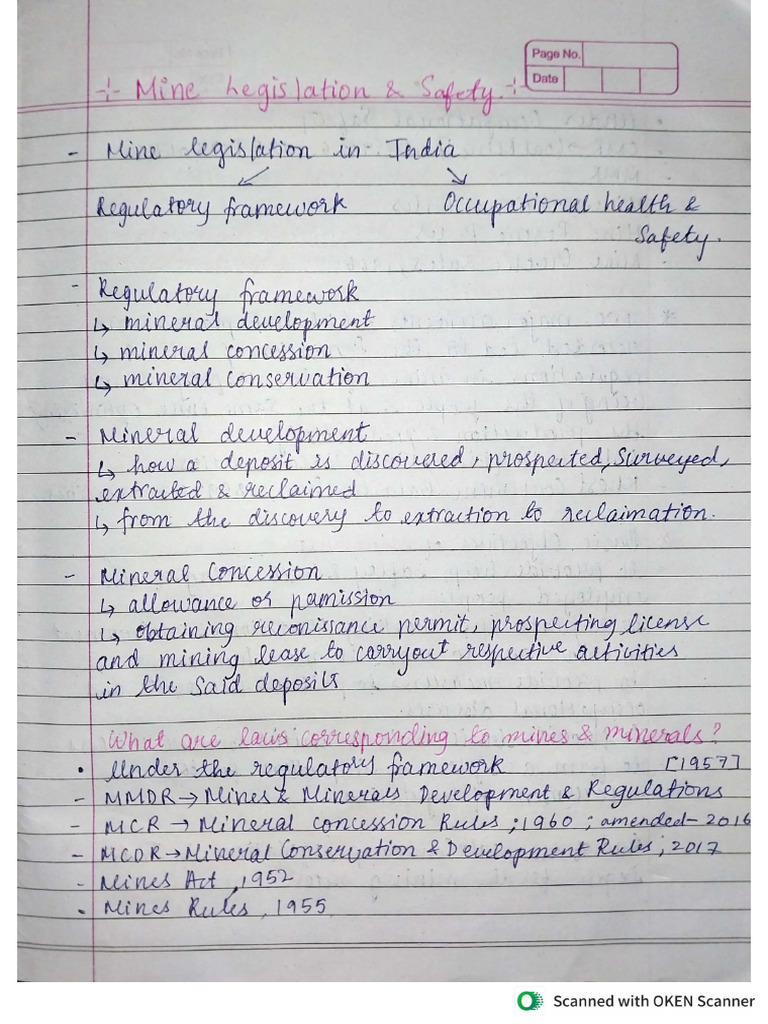 Page No.
Date
-:- Mine Legislation & Safety -:-
- Mine legislation in India
Regulatory framework Occupational health &
Safety.
- Regulatory framework
↳ mineral development
↳ mineral concession
↳ mineral conservation
- Mineral development
↳ how a deposit is discovered, prospected, Surveyed,
extracted & reclaimed
↳ from the discovery to extraction to reclaimation.
- Mineral Concession
↳ allowance or pamission
↳ obtaining reconissance permit, prospecting license
and mining lease to carryout respective activities
in the said deposits
What are laws corresponding to mines & minerals?
• Under the regulatory framework [1957]
- MMDR → Mines & Minerals Development & Regulations
- MCR → Mineral concession Rules ; 1960 ; amended - 2016
- MCDR → Mineral Conservation & Development Rules ; 2017
- Mines Act , 1952
- Mines Rules , 1955
Scanned with OKEN Scanner